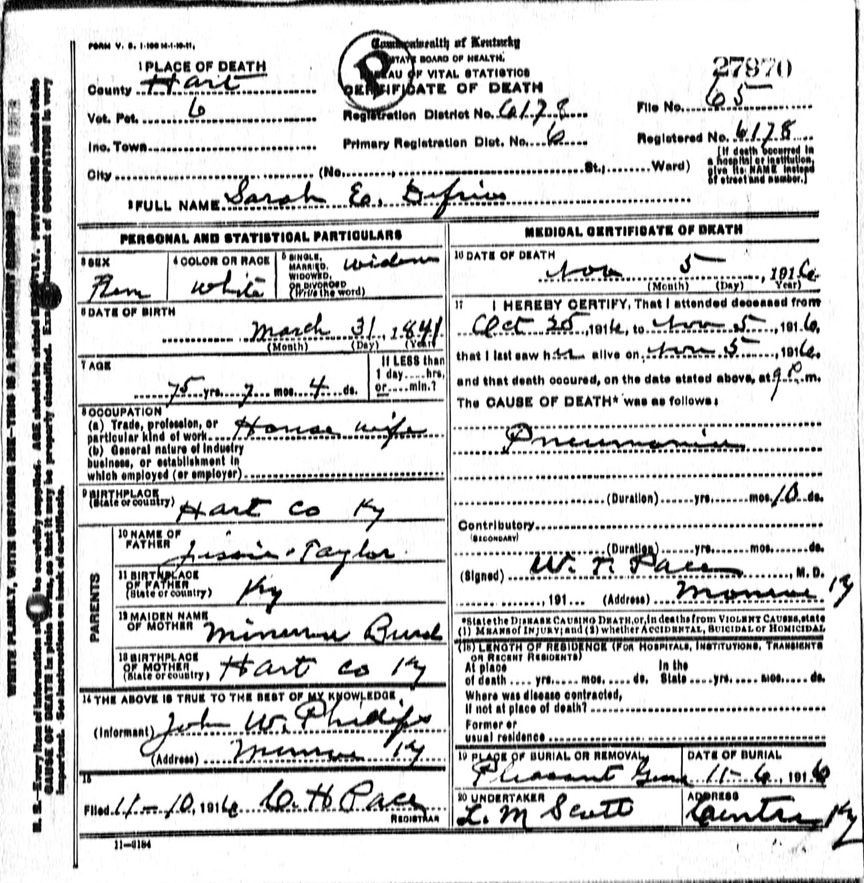 FORM V. S. 1-100 M-1-10-11.
Commonwealth of Kentucky
STATE BOARD OF HEALTH.
BUREAU OF VITAL STATISTICS
CERTIFICATE OF DEATH
27970
1 PLACE OF DEATH
County Hart
Vot. Pct. 6
Inc. Town
City (No. St.; Ward)
Registration District No. 6178
Primary Registration Dist. No. 6
File No. 65
Registered No. 6178
[If death occurred in
a hospital or institution,
give its NAME instead
of street and number.]
2 FULL NAME Sarah E.
PERSONAL AND STATISTICAL PARTICULARS
3 SEX
Fem
4 COLOR OR RACE
White
5 SINGLE,
MARRIED,
WIDOWED,
OR DIVORCED
(Write the word)
Widow
6 DATE OF BIRTH
March 31, 1841
(Month) (Day) (Year)
7 AGE
75 yrs. 7 mos. 4 ds.
If LESS than
1 day....hrs.
or....min.?
8 OCCUPATION
(a) Trade, profession, or
particular kind of work House wife
(b) General nature of industry
business, or establishment in
which employed (or employer)
9 BIRTHPLACE
(State or country) Hart Co Ky
PARENTS
10 NAME OF
FATHER Taylor
11 BIRTHPLACE
OF FATHER
(State or country) Ky
12 MAIDEN NAME
OF MOTHER
13 BIRTHPLACE
OF MOTHER
(State or country) Hart Co Ky
14 THE ABOVE IS TRUE TO THE BEST OF MY KNOWLEDGE
(Informant) John W. Phillips
(Address) Monroe Ky
15
Filed 11-10, 1916 C. H. Pace
REGISTRAR
11-6184
MEDICAL CERTIFICATE OF DEATH
16 DATE OF DEATH
Nov 5, 1916
(Month) (Day) (Year)
17 I HEREBY CERTIFY, That I attended deceased from
Oct 25, 1916, to Nov 5, 1916,
that I last saw her alive on Nov 5, 1916,
and that death occured, on the date stated above, at 9 P.m.
The CAUSE OF DEATH* was as follows:
Pneumonia
(Duration) yrs. mos. 10 ds.
Contributory
(SECONDARY)
(Duration) yrs. mos. ds.
(Signed) W. T. Pace, M. D.
, 191 (Address) Monroe Ky
*State the DISEASE CAUSING DEATH, or, in deaths from VIOLENT CAUSES, state
(1) MEANS of INJURY; and (2) whether ACCIDENTAL, SUICIDAL or HOMICIDAL
(18) LENGTH OF RESIDENCE (FOR HOSPITALS, INSTITUTIONS, TRANSIENTS
OR RECENT RESIDENTS)
At place In the
of death yrs. mos. ds. State yrs. mos. ds.
Where was disease contracted,
if not at place of death?
Former or
usual residence
19 PLACE OF BURIAL OR REMOVAL
Pleasant
DATE OF BURIAL
11-6, 1916
20 UNDERTAKER
L. M Scott
ADDRESS
Center Ky
WRITE PLAINLY, WITH UNFADING INK—THIS IS A PERMANENT RECORD